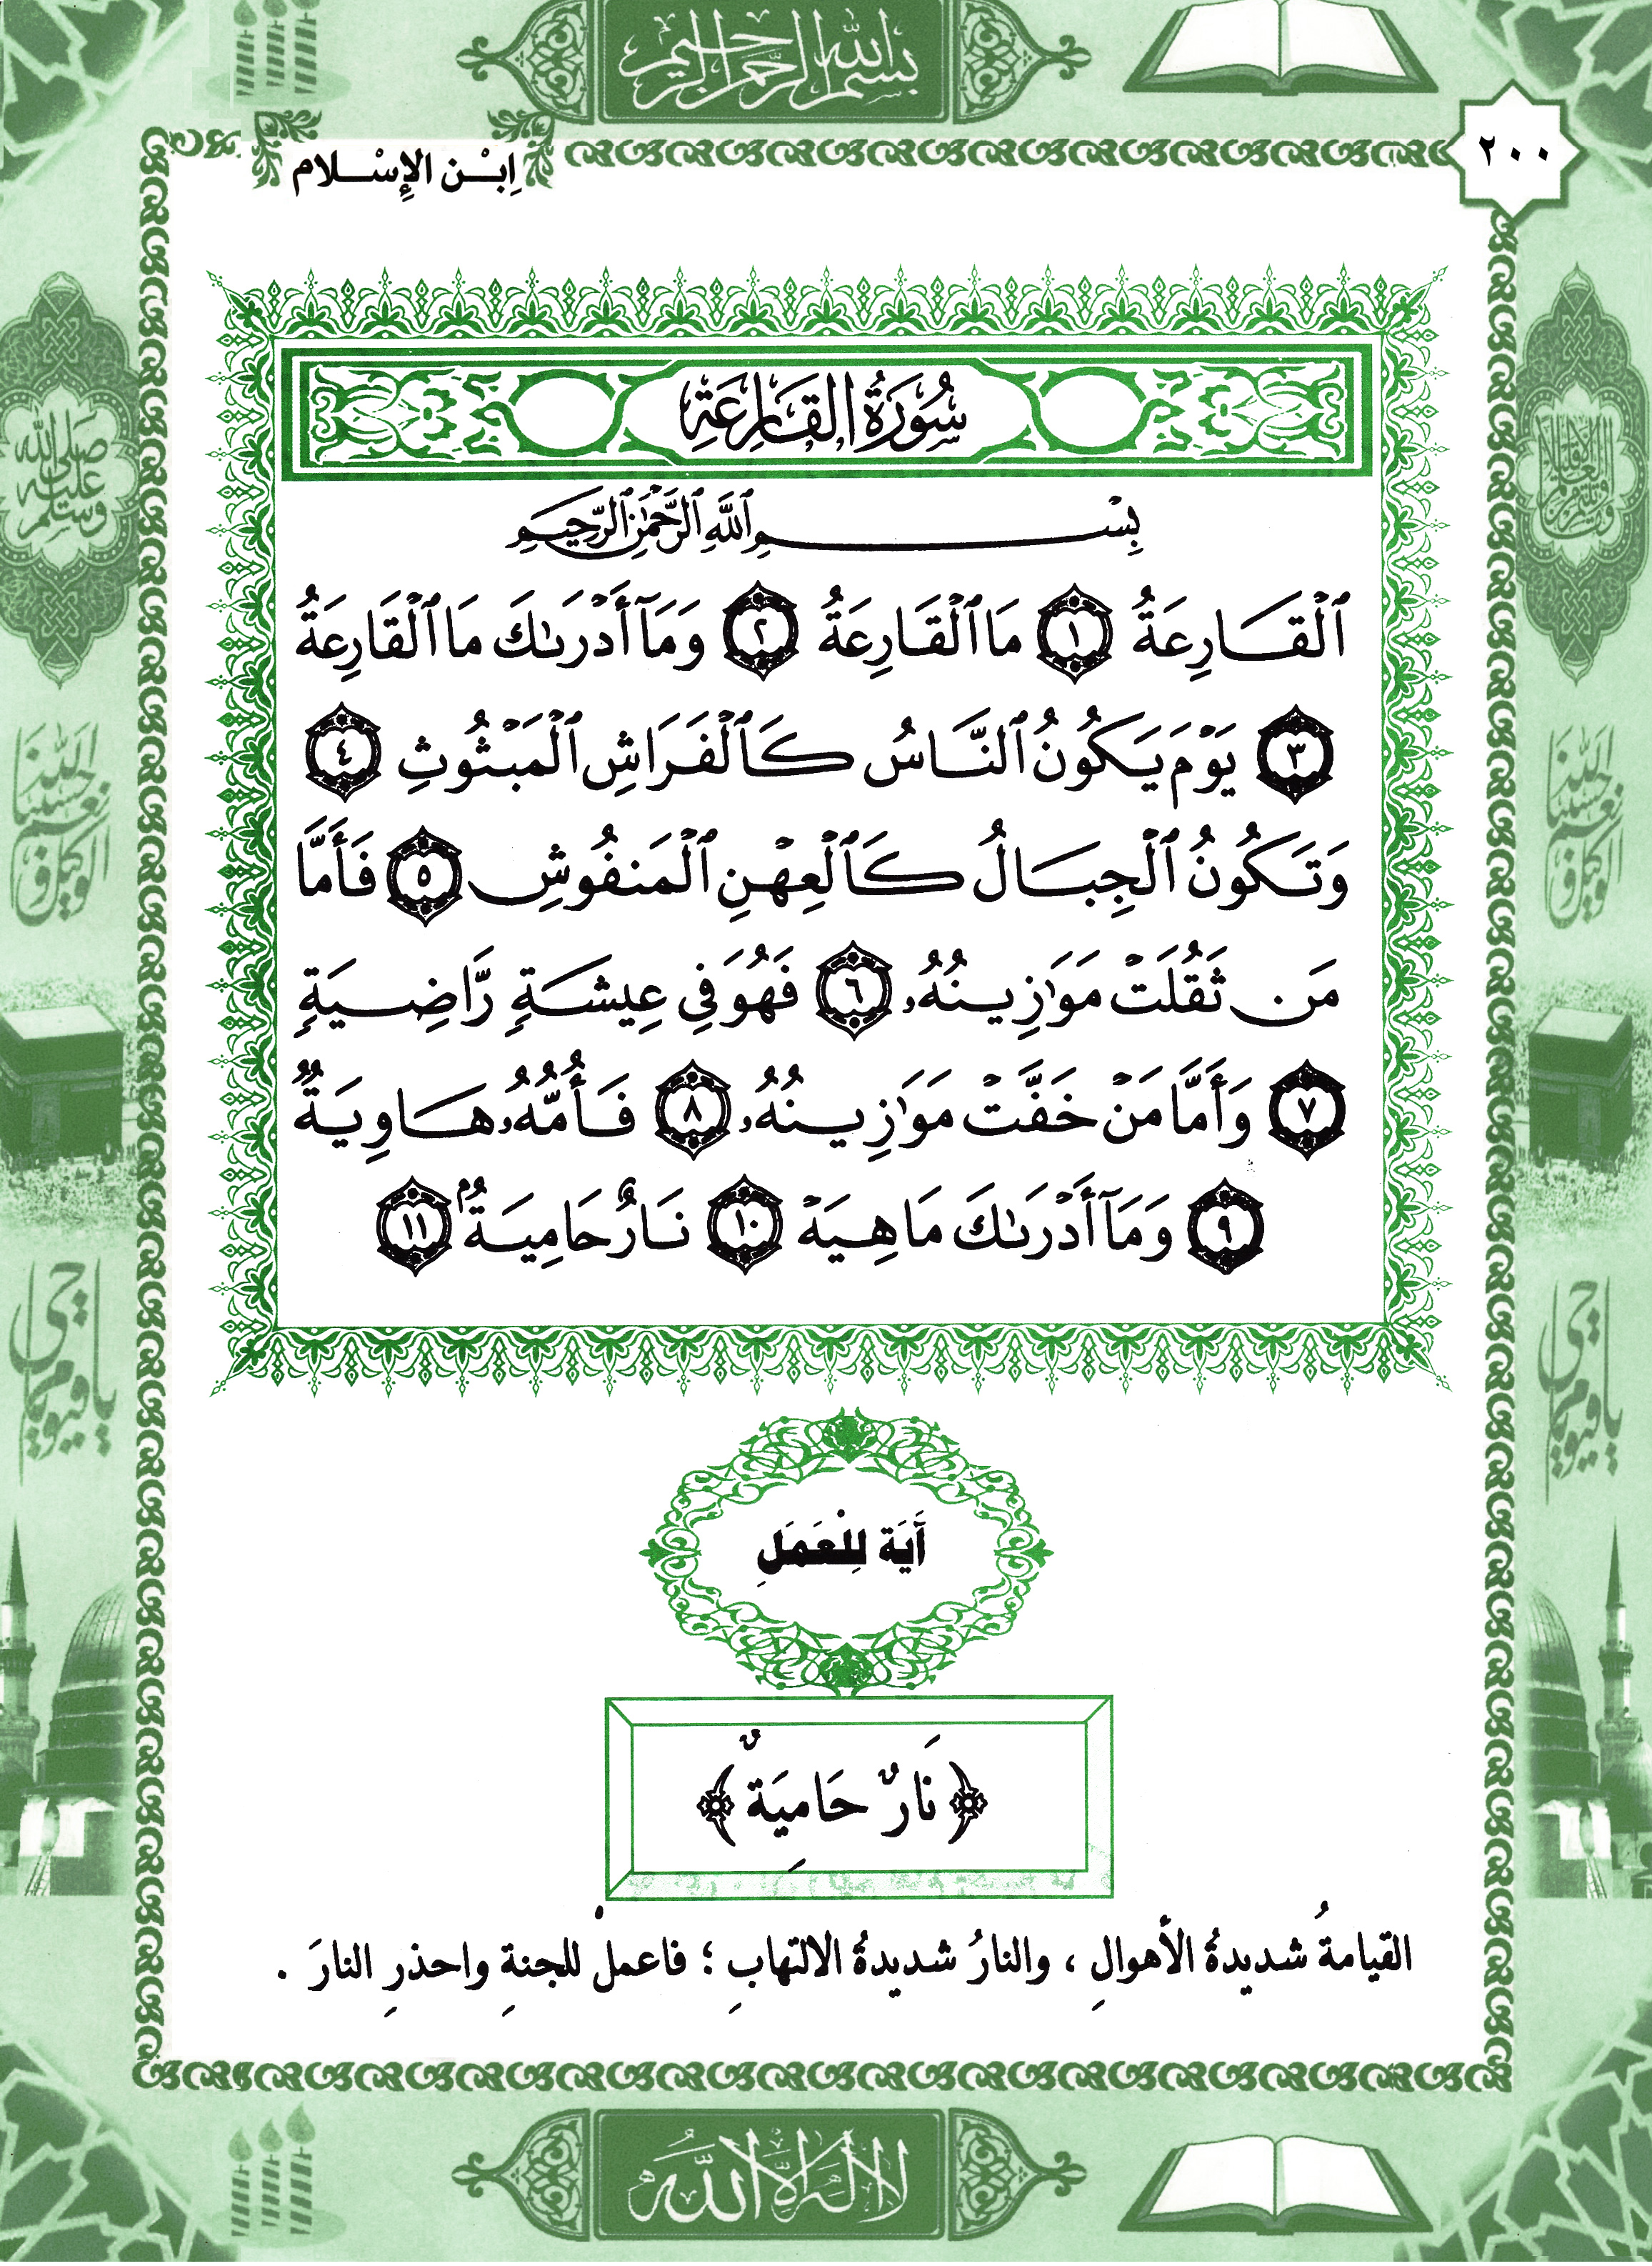 بسم الله الرحمن الرحيم
٢٠٠
اِبْن الإِسْلام
سُورَةُ القَارِعَةِ
بِسْمِ ٱللَّهِ ٱلرَّحْمَٰنِ ٱلرَّحِيمِ
ٱلْقَارِعَةُ ١ مَا ٱلْقَارِعَةُ ٢ وَمَآ أَدْرَىٰكَ مَا ٱلْقَارِعَةُ
٣ يَوْمَ يَكُونُ ٱلنَّاسُ كَٱلْفَرَاشِ ٱلْمَبْثُوثِ ٤
وَتَكُونُ ٱلْجِبَالُ كَٱلْعِهْنِ ٱلْمَنفُوشِ ٥ فَأَمَّا
مَن ثَقُلَتْ مَوَٰزِينُهُۥ ٦ فَهُوَ فِي عِيشَةٍ رَّاضِيَةٍ
٧ وَأَمَّا مَنْ خَفَّتْ مَوَٰزِينُهُۥ ٨ فَأُمُّهُۥ هَاوِيَةٌ
٩ وَمَآ أَدْرَىٰكَ مَا هِيَهْ ١٠ نَارٌ حَامِيَةٌۢ ١١
صلى الله عليه وسلم
حسبنا الله ونعم الوكيل
حسبنا الله ونعم الوكيل
يا حي يا قيوم
يا حي يا قيوم
آيَة لِلْعَمَلِ
﴿نَارٌ حَامِيَةٌ﴾
القيامةُ شديدةُ الأهوالِ ، والنارُ شديدةُ الالتهابِ ؛ فاعملْ للجنةِ واحذرِ النارَ .
لا إله إلا الله